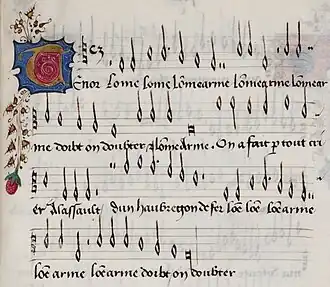 Tenor Lome lome lomearme lomearme lomear
me doibt on doubter lomearme. On a fait p tout cri
er Alassault dun haubregon de fer lome lome lome arme
lome arme lome arme doibt on doubter